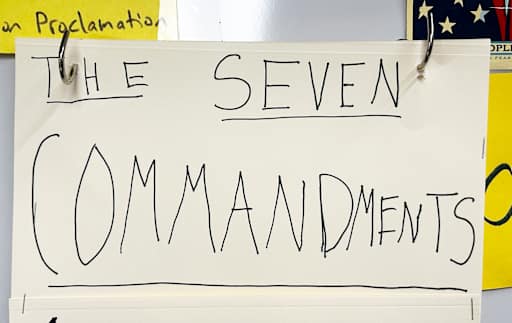 on Proclamation
THE SEVEN
COMMANDMENTS